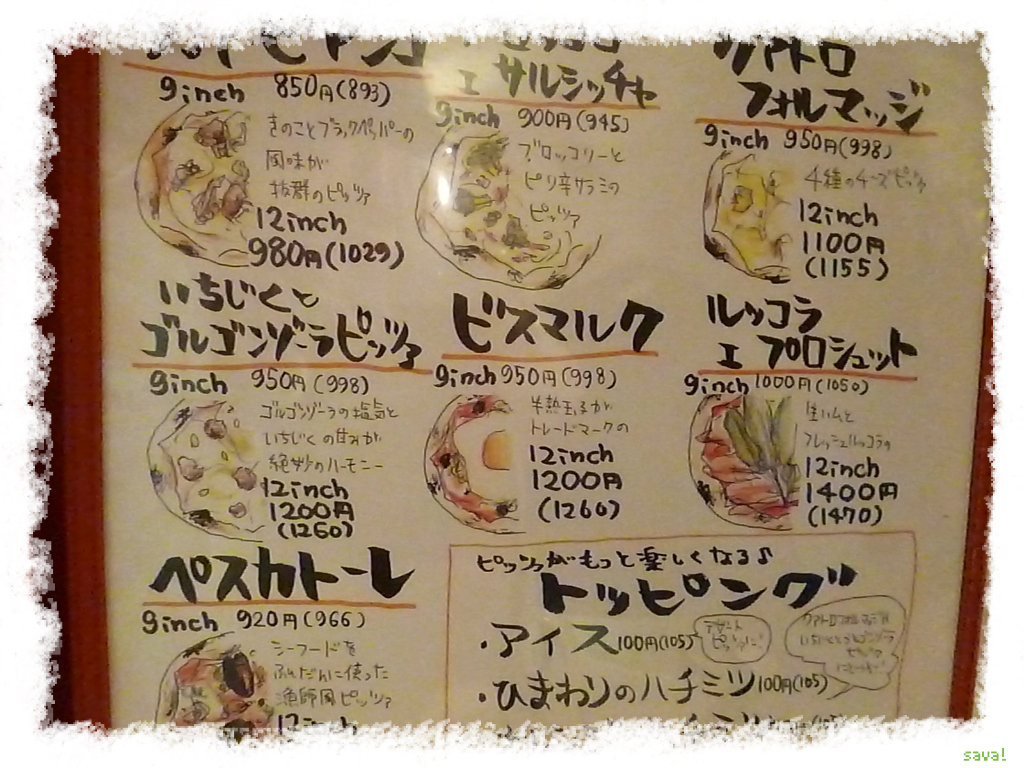 9inch 850円(893)
きのことブラックペッパーの
風味が
抜群のピッツァ
12inch
980円(1029)
エ サルシッチャ
9inch 900円(945)
ブロッコリーと
ピリ辛サラミの
ピッツァ
クアトロ
フォルマッジ
9inch 950円(998)
4種のチーズピッツァ
12inch
1100円
(1155)
いちじくと
ゴルゴンゾーラピッツァ
9inch 950円(998)
ゴルゴンゾーラの塩気と
いちじくの甘みが
絶妙のハーモニー
12inch
1200円
(1260)
ビスマルク
9inch 950円(998)
半熟玉子が
トレードマークの
12inch
1200円
(1260)
ルッコラ
エ プロシュット
9inch 1000円(1050)
生ハムと
フレッシュルッコラの
12inch
1400円
(1470)
ペスカトーレ
9inch 920円(966)
シーフードを
ふんだんに使った
漁師風ピッツァ
12inch
ピッツァがもっと楽しくなる♪
トッピング
・アイス 100円(105)
デザート
ピッツァに!
・ひまわりのハチミツ 100円(105)
クアトロフォルマッジ
いちじくとゴルゴンゾーラ
ピッツァ
sava!